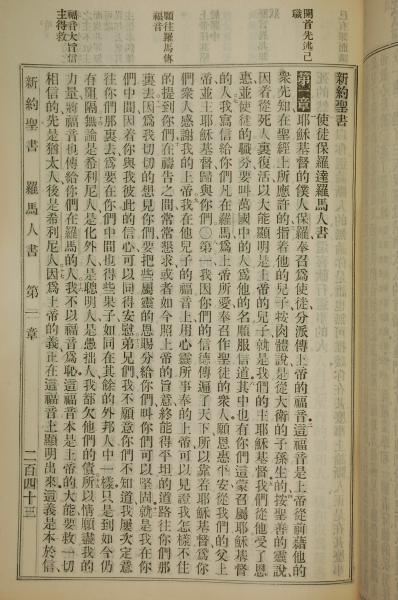 新約聖書
使徒保羅達羅馬人書
開首先述己
職
第一章 耶穌基督的僕人保羅奉召爲使徒分派傳上帝的福音、這福音是上帝從前藉他的
衆先知在聖經上所應許的、指着他的兒子、按肉體說、是從大衛的子孫生的、按聖善的靈說、
因着從死人裏復活、以大能顯明是上帝的兒子、就是我們的主耶穌基督、我們從他受了恩
惠並使徒的職分、要叫萬國中的人爲他的名順服信道、其中也有你們這蒙召屬耶穌基督
的人、我寫信給你們凡在羅馬爲上帝所愛奉召作聖徒的衆人、願恩惠平安、從我們的父上
帝並主耶穌基督歸與你們〇第一我因你們的信德傳遍了天下、所以靠着耶穌基督爲你
願往羅馬傳
福音
們衆人感謝我的上帝、我在他兒子的福音上用心靈所事奉的上帝可以見證、我怎樣不住
的提到你們、在禱告之間常常懇求、或者如今照上帝的旨意、終能得平坦的道路往你們那
裏去、因爲我切切的想見你們、要把些屬靈的恩賜分給你們、叫你們可以堅固、就是我在你
們中間、因着你與我彼此的信心、可以同得安慰、弟兄們、我不願意你們不知道、我屢次定意
往你們那裏去、爲要在你們中間也得些果子、如同在其餘的外邦人中一樣、只是到如今仍
有阻隔、無論是希利尼人、是化外人、是聰明人、是愚拙人、我都欠他們的債、所以情願盡我的
福音大旨信
主得救
力量、將福音也傳給你們在羅馬的人、我不以福音爲恥、這福音本是上帝的大能、要救一切
相信的、先是猶太人、後是希利尼人、因爲上帝的義、正在這福音上顯明出來、這義是本於信、
新約聖書 羅馬人書 第一章 二百四十三